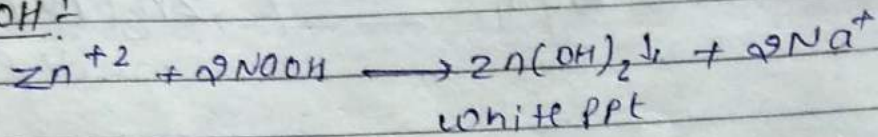 OH :-
Zn⁺² + 2NaOH ⟶ Zn(OH)₂↓ + 2Na⁺
white ppt